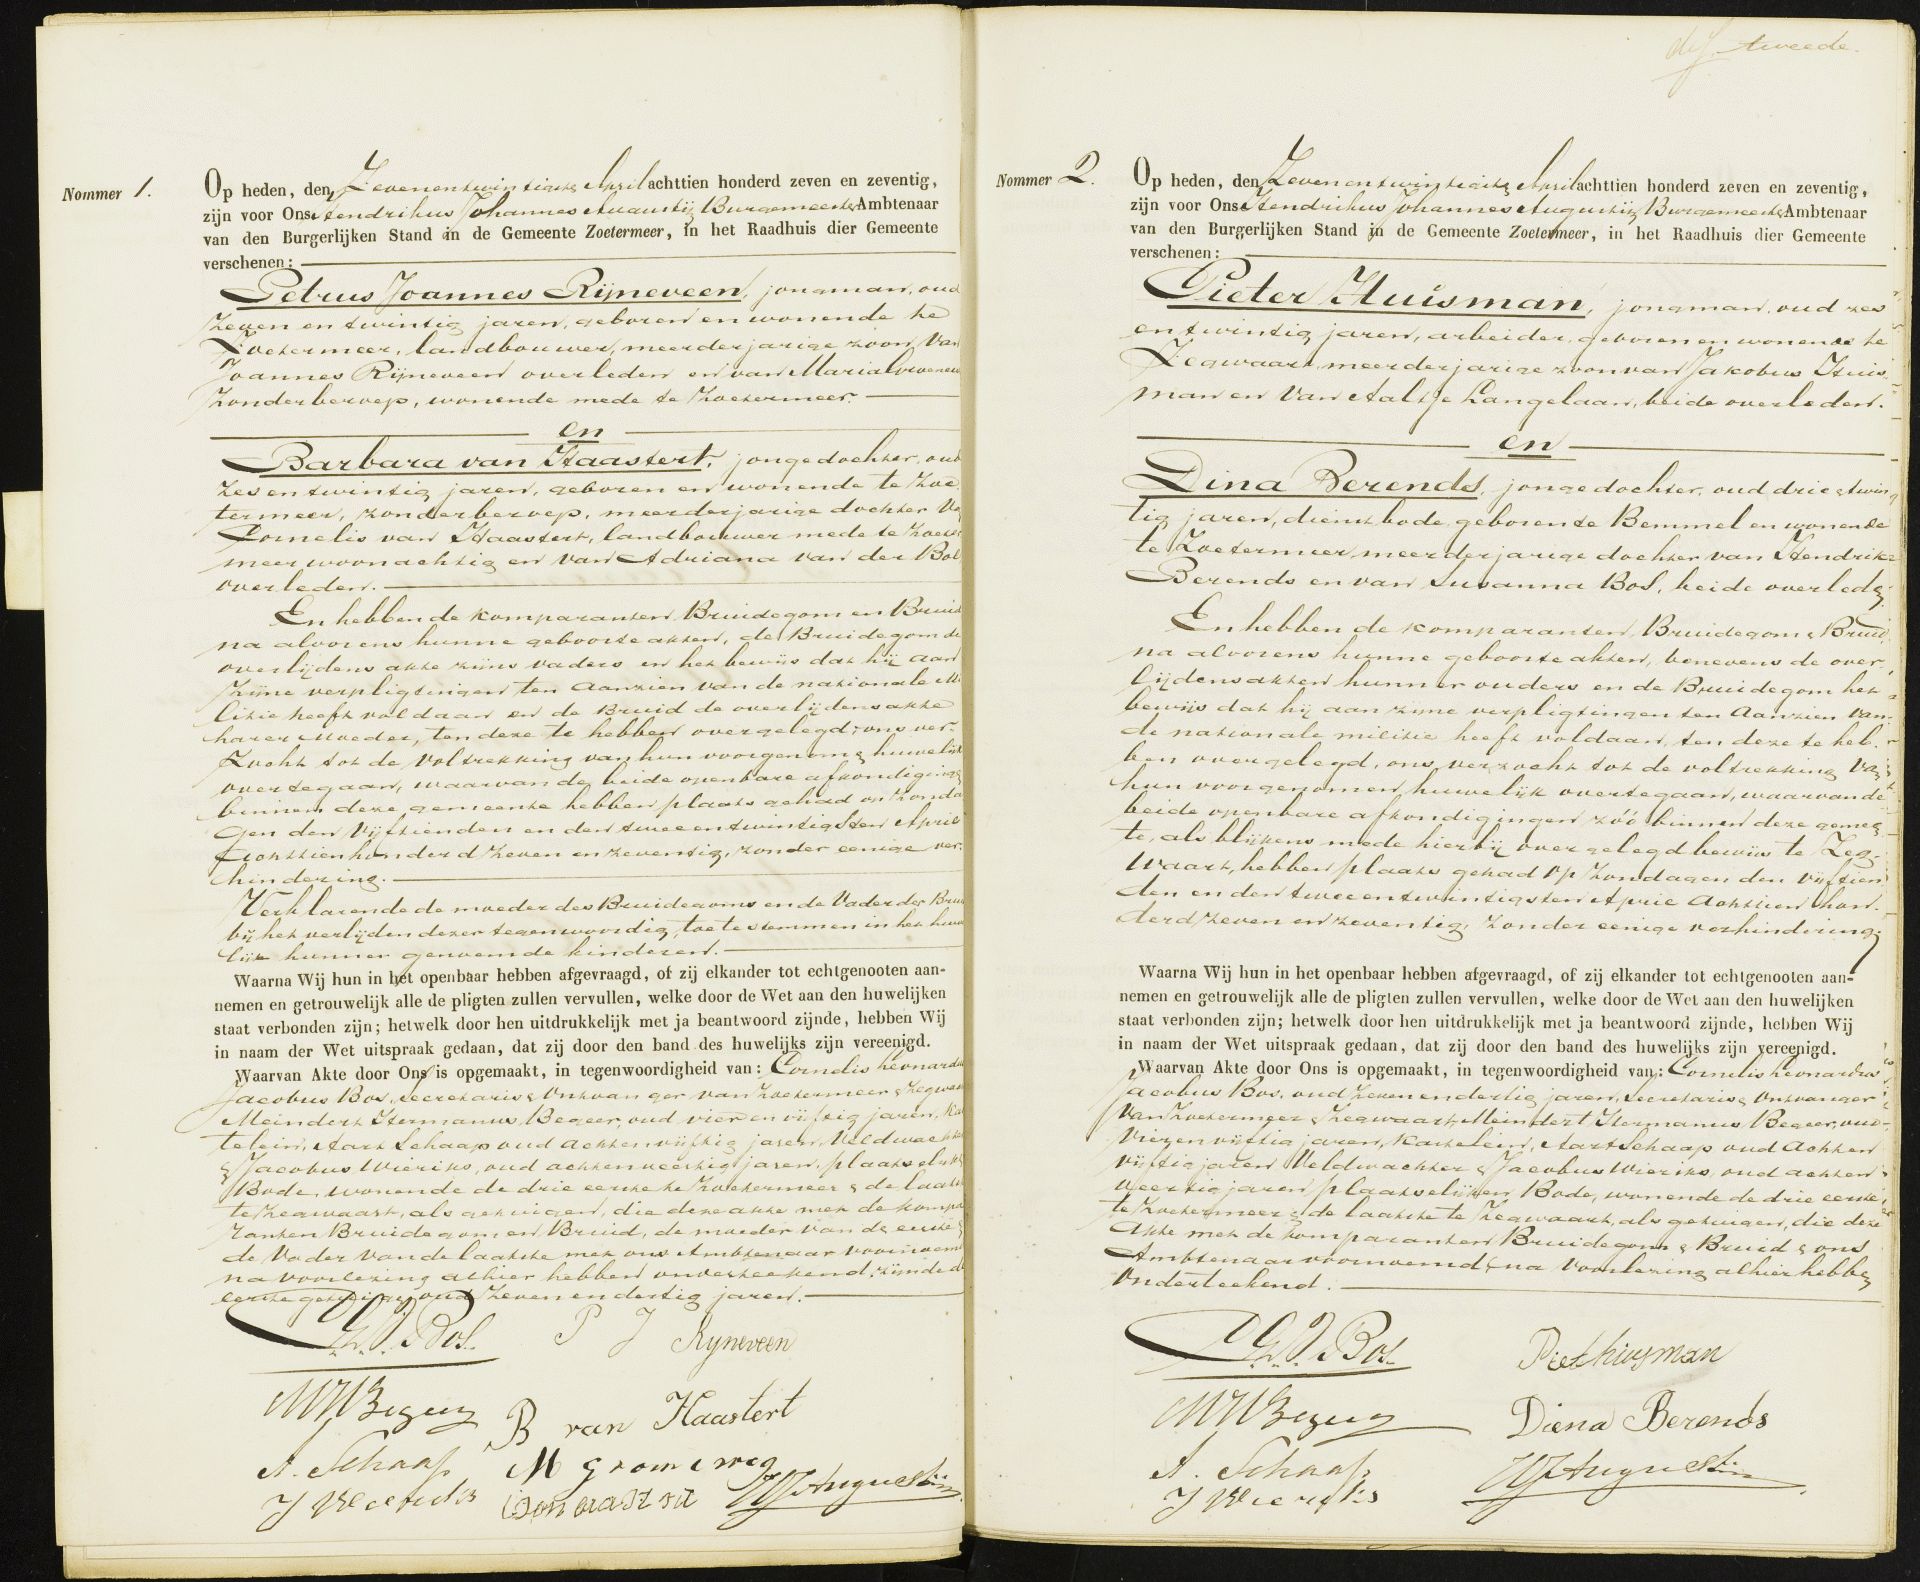 Nommer 1.
Op heden, den Zevenentwintigste April achttien honderd zeven en zeventig,
zijn voor Ons Hendrikus Johannes Augustijn Burgemeester Ambtenaar
van den Burgerlijken Stand in de Gemeente Zoetermeer, in het Raadhuis dier Gemeente
verschenen:
Petrus Joannes Rijneveen, jongman, oud
Zeven en twintig jaren, geboren en wonende te
Zoetermeer, landbouwer, meerderjarige zoon van
Joannes Rijneveen overleden en van Maria
Zonder beroep, wonende mede te Zoetermeer.
en
Barbara van Haastert, jongedochter, oud
Zes en twintig jaren, geboren en wonende te Zoe
termeer, zonder beroep, meerderjarige dochter Van
Cornelis van Haastert, landbouwer mede te Zoeter
meer woonachtig en van Adriana van der Bol
overleden.
En hebben de komparanten Bruidegom en Bruid
na alvorens hunne geboorte akten, de Bruidegom de
overlijdens akte zijns vaders en het bewijs dat hij aan
Zijne verpligtingen ten aanzien van de nationale Mi
litie heeft voldaan en de Bruid de overlijdensakte
harer Moeder, ten deze te hebben overgelegd, ons ver-
Zocht tot de Voltrekking van hun voorgenomen huwelijk
overtegaan, waarvan de beide openbare afkondigingen
binnen deze gemeente hebben plaats gehad op Zonda
gen den Vijftienden en den tweeentwintigsten April
Achttienhonderd Zeven en zeventig, zonder eenige ver-
hindering.
Verklarende de moeder des Bruidegoms en de Vader der Bruid
bij het verlijden dezer tegenwoordig, toetestemmen in het huwe
lijk hunner genoemde kinderen.
Waarna Wij hun in het openbaar hebben afgevraagd, of zij elkander tot echtgenooten aan-
nemen en getrouwelijk alle de pligten zullen vervullen, welke door de Wet aan den huwelijken
staat verbonden zijn; hetwelk door hen uitdrukkelijk met ja beantwoord zijnde, hebben Wij
in naam der Wet uitspraak gedaan, dat zij door den band des huwelijks zijn vereenigd.
Waarvan Akte door Ons is opgemaakt, in tegenwoordigheid van: Cornelis Leonardus
Jacobus Bos, secretaris & Ontvanger van Zoetermeer & Zegwaart
Meindert Hermanus Begeer, oud vier en vijftig jaren, Kas
telein, Aart Schaap oud achtenvijftig jaren, Veldwachter
& Jacobus Wieriks, oud achtenveertig jaren, plaatselijke
Bode, wonende de drie eerste te Zoetermeer & de laatste
te Zegwaart, als getuigen, die deze akte met de kompa
ranten Bruidegom en Bruid, de moeder van de eerste &
de Vader van de laatste met ons Ambtenaar voornoemd
na voorlezing alhier hebben onderteekend, zijnde de
eerste getuige oud Zeven en dertig jaren.
C.L.J. Bos. P J Rijneveen
MHBegeer B van Haastert
A. Schaap M
J Wieriks HJAugustijn
dij tweede.
Nommer 2.
Op heden, den Zevenentwintigste April achttien honderd zeven en zeventig,
zijn voor Ons Hendrikus Johannes Augustijn Burgemeester Ambtenaar
van den Burgerlijken Stand in de Gemeente Zoetermeer, in het Raadhuis dier Gemeente
verschenen:
Pieter Huisman, jongman, oud zes
en twintig jaren, arbeider, geboren en wonende te
Zegwaart, meerderjarige zoon van Jakobus Huis-
man en Van Aaltje Langelaan, beide overleden.
en
Dina Berends, jongedochter, oud drie & twin
tig jaren, dienstbode geboren te Bemmel en wonende
te Zoetermeer, meerderjarige dochter van Hendrik
Berends en van Susanna Bos, beide overleden.
En hebben de komparanten Bruidegom & Bruid,
na alvorens hunne geboorte akten, benevens de over-
lijdensakten hunner ouders en de Bruidegom het
bewijs dat hij aan zijne verpligtingen ten aanzien van
de nationale militie heeft voldaan, ten deze te heb-
ben overgelegd, ons verzocht tot de voltrekking van
hun voorgenomen huwelijk overtegaan, waarvan de
beide openbare afkondigingen zóó binnen deze gemeen
te, als blijkens mede hierbij overgelegd bewijs te Zeg-
waart, hebben plaats gehad op Zondagen den vijftien
den en den tweeentwintigsten April Achttien hon-
derd zeven en zeventig, zonder eenige verhindering.
Waarna Wij hun in het openbaar hebben afgevraagd, of zij elkander tot echtgenooten aan-
nemen en getrouwelijk alle de pligten zullen vervullen, welke door de Wet aan den huwelijken
staat verbonden zijn; hetwelk door hen uitdrukkelijk met ja beantwoord zijnde, hebben Wij
in naam der Wet uitspraak gedaan, dat zij door den band des huwelijks zijn vereenigd.
Waarvan Akte door Ons is opgemaakt, in tegenwoordigheid van: Cornelis Leonardus
Jacobus Bos, oud Zeven en dertig jaren, secretaris & Ontvanger
van Zoetermeer & Zegwaart, Meindert Hermanus Begeer, oud
Vier en vijftig jaren, Kastelein, Aart Schaap oud Achten
vijftig jaren Veldwachter & Jacobus Wieriks, oud achten
veertig jaren plaatselijken Bode, wonende de drie eerste
te Zoetermeer & de laatste te Zegwaart, als getuigen, die deze
Akte met de komparanten Bruidegom & Bruid & ons
Ambtenaar voornoemd na Voorlezing alhier hebben
Onderteekend.
C.L.J. Bos. Piet huysman
MHBegeer Diena Berends
A. Schaap HJAugustijn
J Wieriks